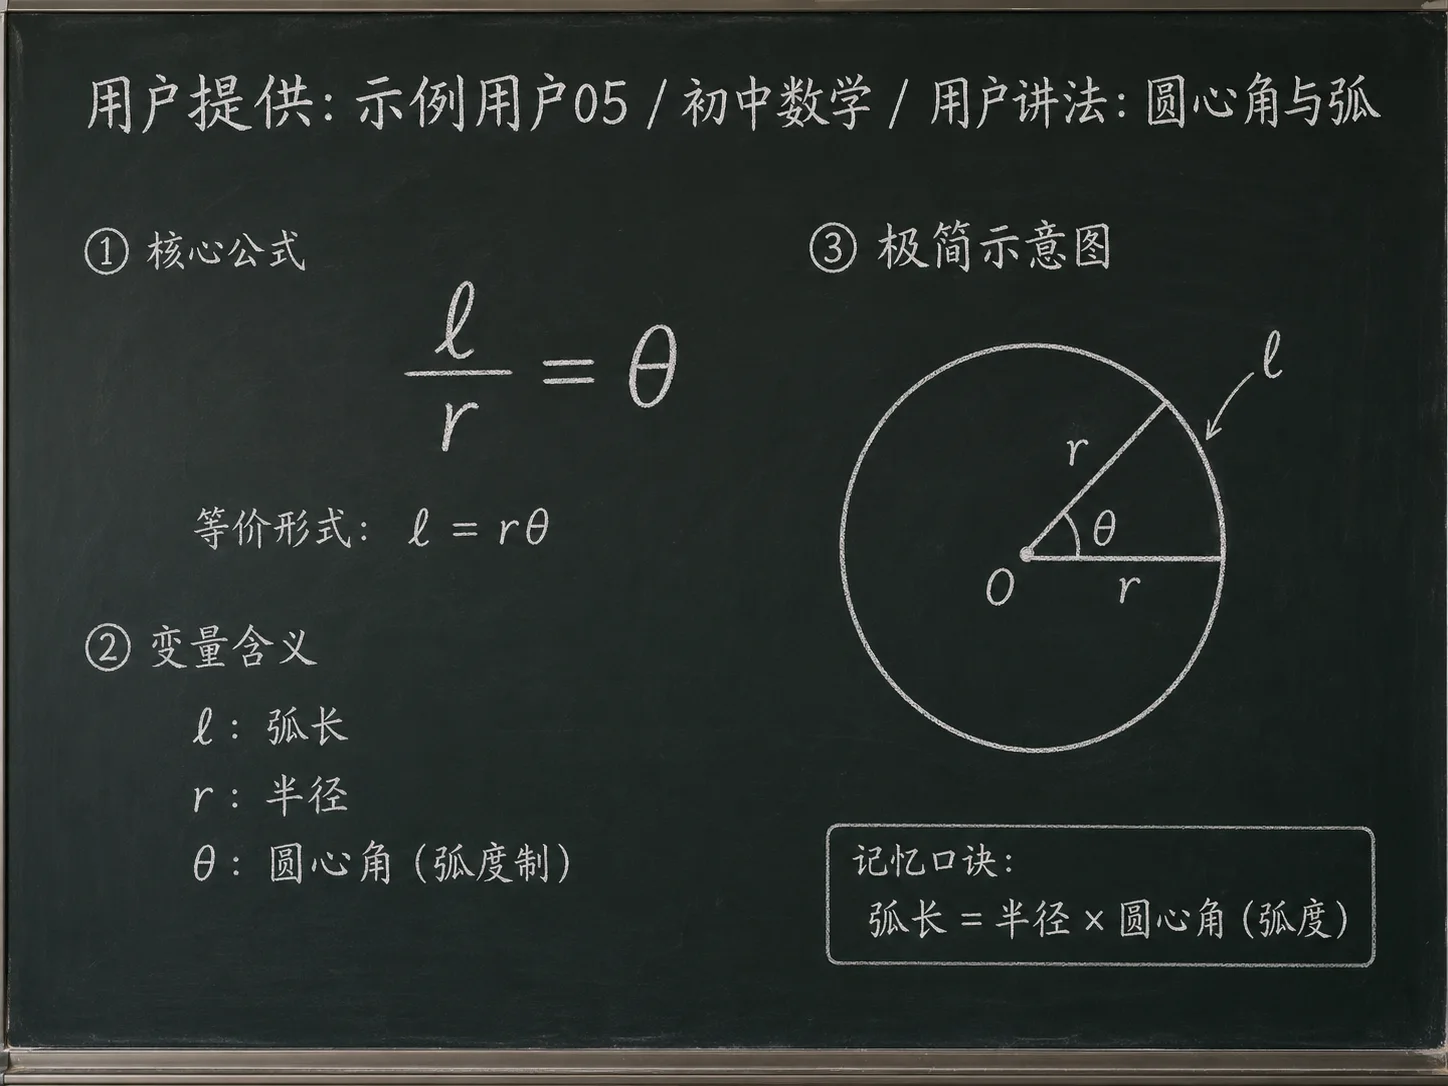 用户提供: 示例用户05 / 初中数学 / 用户讲法: 圆心角与弧
① 核心公式
ℓ
r
= θ
等价形式: ℓ = rθ
② 变量含义
ℓ: 弧长
r: 半径
θ: 圆心角 (弧度制)
③ 极简示意图
ℓ
r
θ
O
r
记忆口诀:
弧长 = 半径 × 圆心角 (弧度)